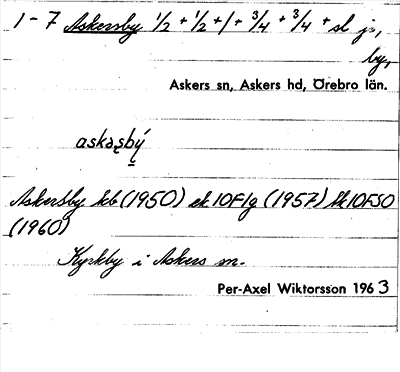 1-7 Askersby 1/2 + 1/2 + 1 + 3/4 + 3/4 + sl jo,
by,
Askers sn, Askers hd, Örebro län.
askəsbý
Askersby kb (1950) ek 10F1g (1957) tk 10F50
(1960)
Kyrkby i Askers sn.
Per-Axel Wiktorsson 1963